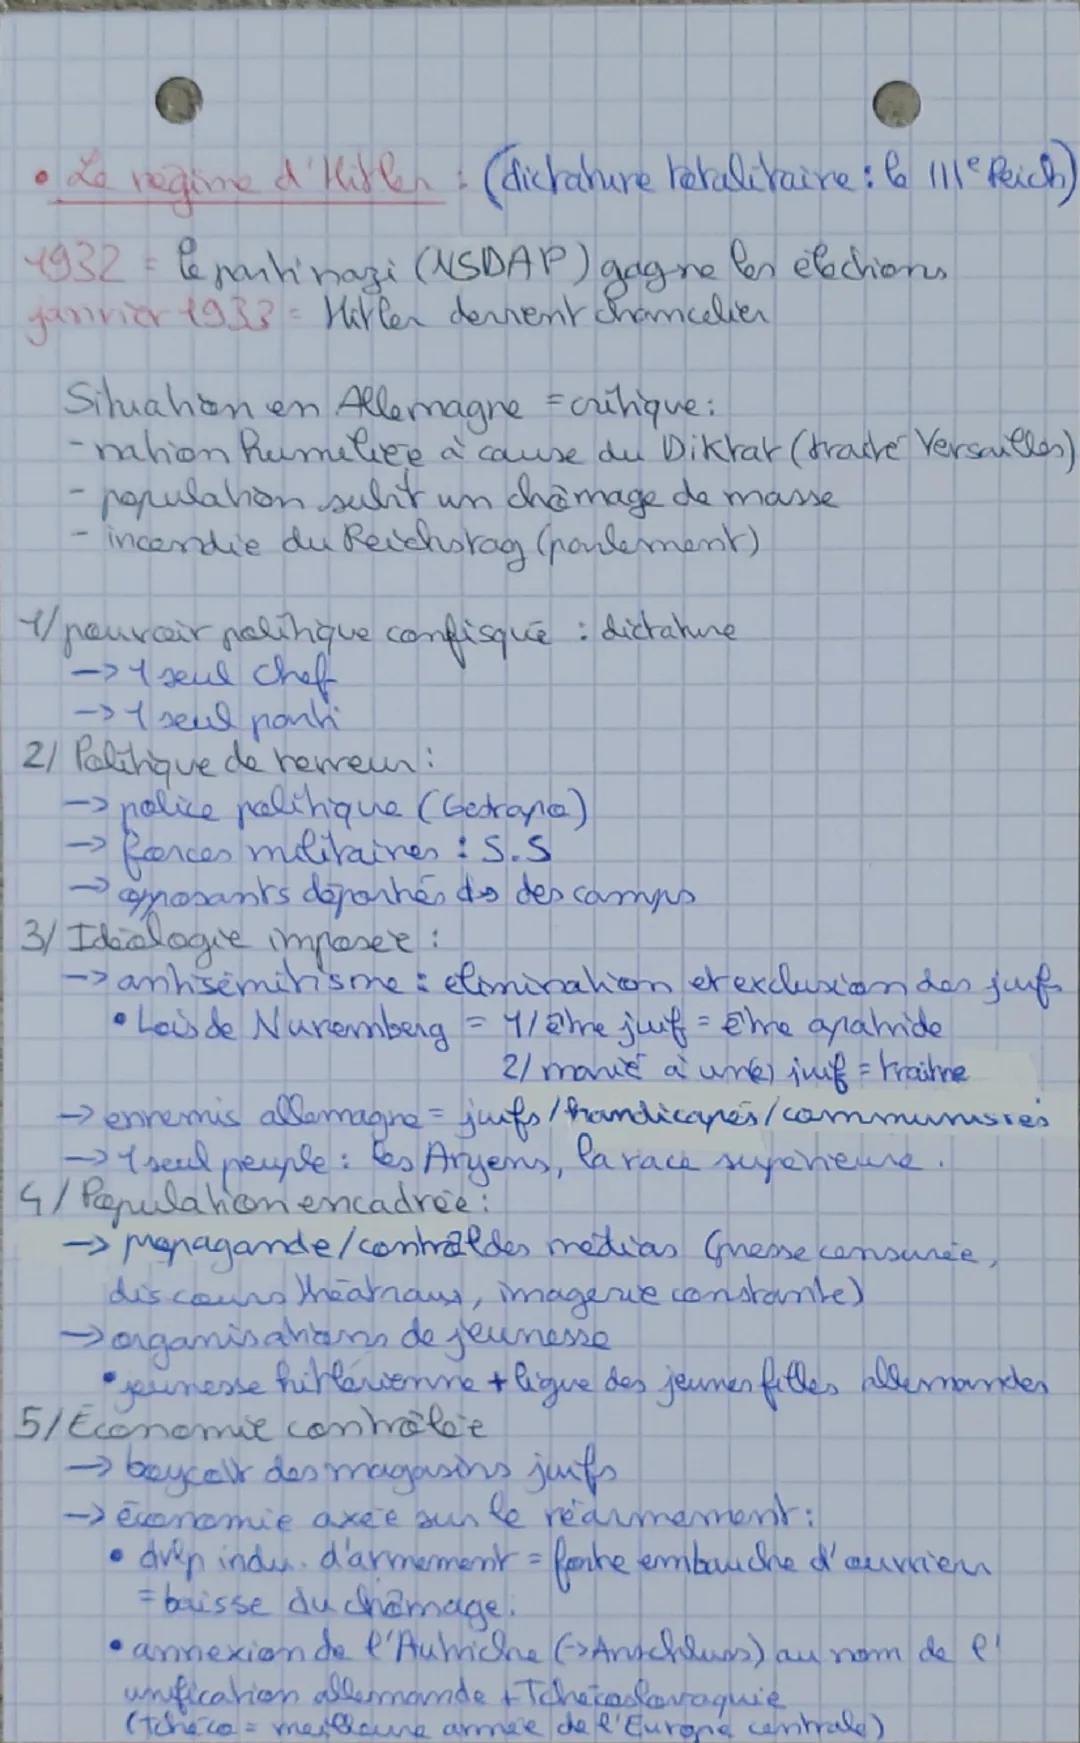 • Le régime d'Hitler : (dictature totalitaire : le IIIe Reich)
1932 = le parti nazi (NSDAP) gagne les élections
janvier 1933 = Hitler devient chancelier
Situation en Allemagne = critique :
- nation humiliée à cause du Diktat (traité Versailles)
- population subit un chômage de masse
- incendie du Reichstag (parlement)
1/ pouvoir politique confisqué : dictature
-> 1 seul chef
-> 1 seul parti
2/ Politique de terreur :
-> police politique (Gestapo)
-> forces militaires : S.S
-> opposants déportés ds des camps
3/ Idéologie imposée :
-> antisémitisme : élimination et exclusion des juifs
• Lois de Nuremberg = 1/ être juif = être apatride
2/ marié à un(e) juif = traitre
-> ennemis allemagne = juifs/handicapés/communistes
-> 1 seul peuple : les Aryens, la race supérieure.
4/ Population encadrée :
-> propagande/contrôl des médias (presse censurée,
discours théatraux, imagerie constante)
-> organisations de jeunesse
• jeunesse hitlérienne + ligue des jeunes filles allemandes
5/ Économie contrôlée
-> boycott des magasins juifs
-> économie axée sur le réarmement :
• dvlp indu. d'armement = forte embauche d'ouvriers
= baisse du chômage.
• annexion de l'Autriche (-> Anschluss) au nom de l'
unification allemande + Tchécoslovaquie
(Tchéco = meilleure armée de l'Europe centrale)